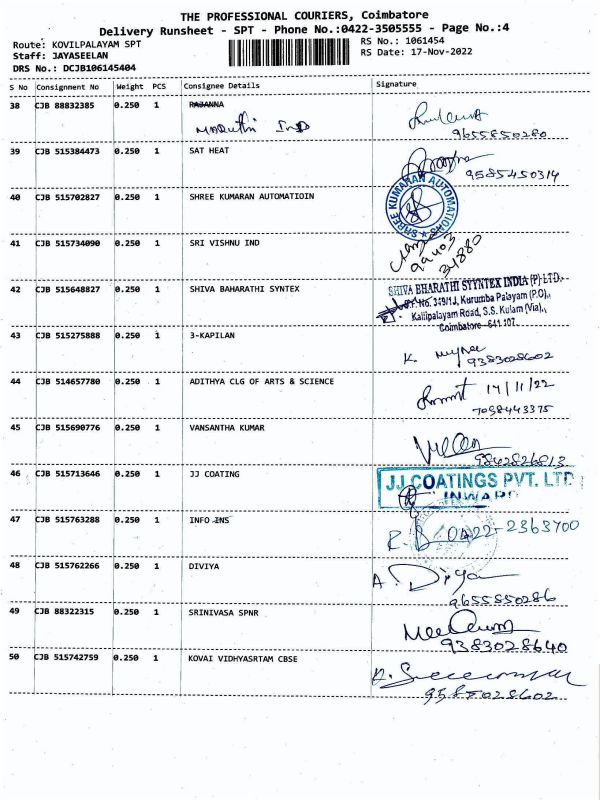 THE PROFESSIONAL COURIERS, Coimbatore
Delivery Runsheet - SPT - Phone No.:0422-3505555 - Page No.:4
Route: KOVILPALAYAM SPT
RS No.: 1061454
Staff: JAYASEELAN
RS Date: 17-Nov-2022
DRS No.: DCJB106145404
S No Consignment No Weight PCS Consignee Details Signature
38 CJB 88832385 0.250 1 RAJANNA
Maruthi IND
9655850280
39 CJB 515384473 0.250 1 SAT HEAT
9585450314
40 CJB 515702827 0.250 1 SHREE KUMARAN AUTOMATIOIN
SHREE KUMARAN AUTOMATIONS
41 CJB 515734090 0.250 1 SRI VISHNU IND
99403
31880
42 CJB 515648827 0.250 1 SHIVA BAHARATHI SYNTEX
SHIVA BHARATHI SYYNTEX INDIA (P) LTD.,
S.F. No. 319/1J, Kurumba Palayam (P.O).,
Kalipalayam Road, S.S. Kulam (Via).,
Coimbatore-641 107.
43 CJB 515275888 0.250 1 3-KAPILAN
K.
9383028602
44 CJB 514657780 0.250 1 ADITHYA CLG OF ARTS & SCIENCE
17/11/22
7098443375
45 CJB 515690776 0.250 1 VANSANTHA KUMAR
9842826813
46 CJB 515713646 0.250 1 JJ COATING
JJ COATINGS PVT. LTD
INWARD
47 CJB 515763288 0.250 1 INFO INS
R. 0422-2363700
48 CJB 515762266 0.250 1 DIVIYA
A. Diya
9655850286
49 CJB 88322315 0.250 1 SRINIVASA SPNR
9383028640
50 CJB 515742759 0.250 1 KOVAI VIDHYASRTAM CBSE
9585028602